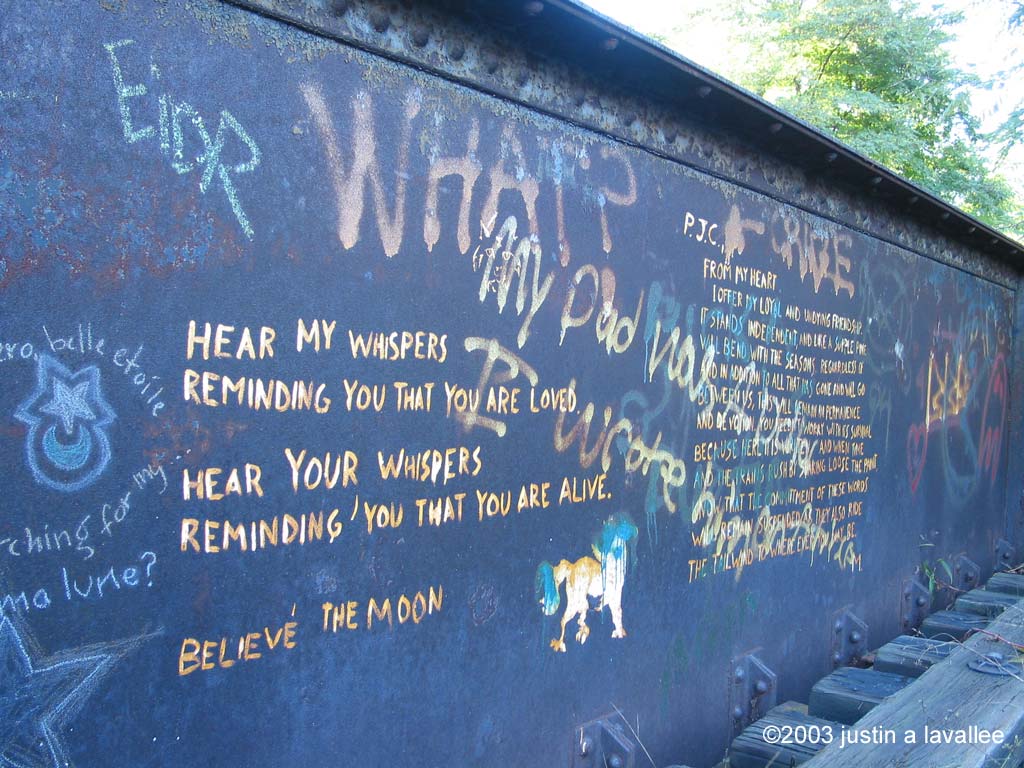 EIDR
WHAT?
ero, belle etoile
ching for my...
ma lune?
HEAR MY WHISPERS
REMINDING YOU THAT YOU ARE LOVED.
HEAR YOUR WHISPERS
REMINDING YOU THAT YOU ARE ALIVE.
BELIEVE THE MOON
My Dad was
I wrote
P.J.C.,
FROM MY HEART
I OFFER MY LOYAL AND UNDYING FRIENDSHIP.
IT STANDS INDEPENDENT AND LIKE A SUPPLE PINE
WILL BEND WITH THE SEASONS, REGARDLESS OF
AND IN ADDITION TO ALL THAT HAS GONE AND WILL GO
BETWEEN US, THIS WILL REMAIN IN PERMANENCE
AND DEVOTION. YOU NEEDN'T WORRY WITH ITS SURVIVAL
BECAUSE HERE IT IS WRITTEN AND WHEN TIME
AND THE TRAINS RUSH BY SHAKING LOOSE THE PAINT
KNOW THAT THE COMMITMENT OF THESE WORDS
WILL REMAIN SUSPENDED AS THEY ALSO RIDE
THE TAILWIND TO WHERE EVER YOU MAY BE.
M.
©2003 justin a lavallee